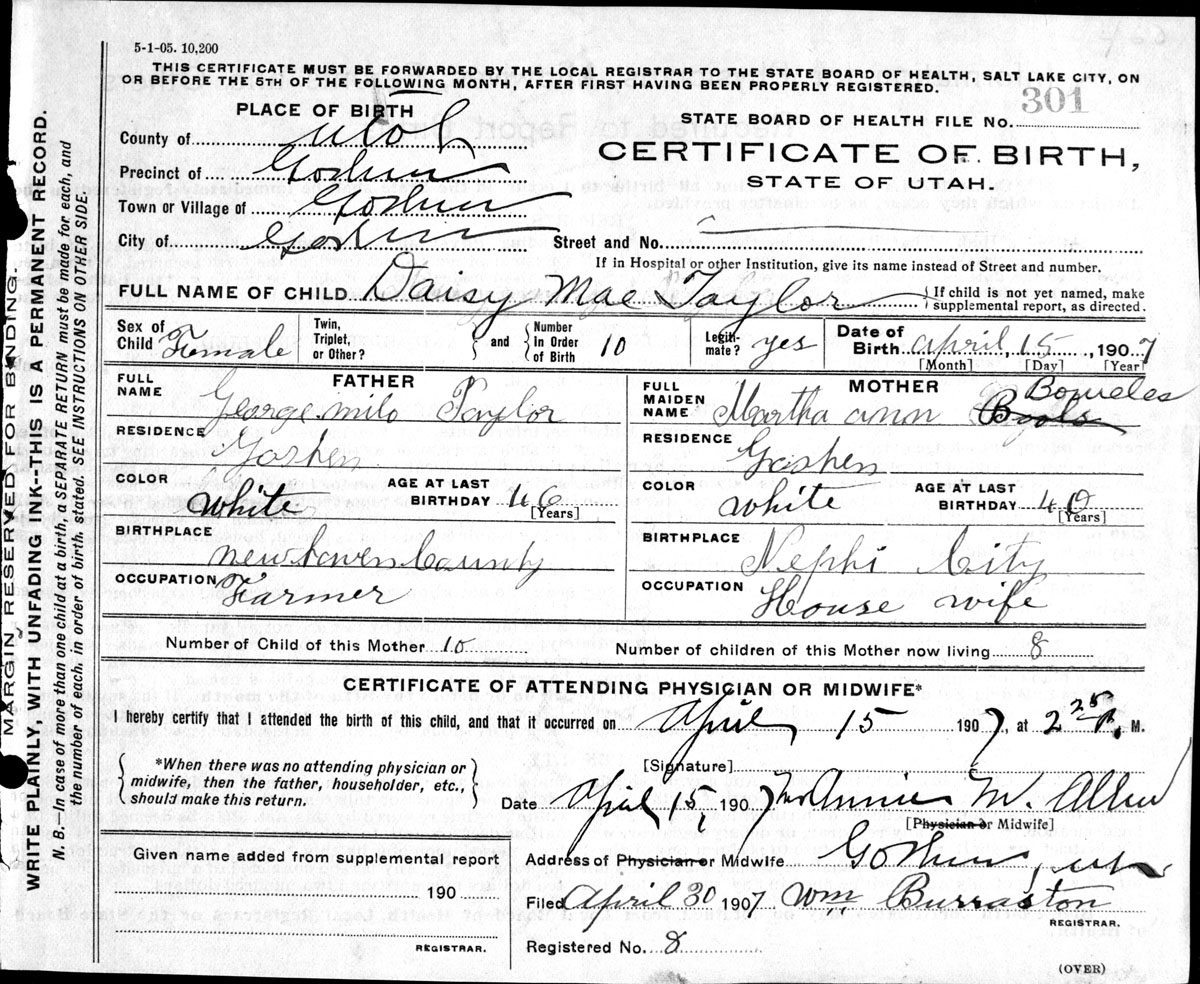 5-1-05. 10,200
THIS CERTIFICATE MUST BE FORWARDED BY THE LOCAL REGISTRAR TO THE STATE BOARD OF HEALTH, SALT LAKE CITY, ON
OR BEFORE THE 5TH OF THE FOLLOWING MONTH, AFTER FIRST HAVING BEEN PROPERLY REGISTERED.
PLACE OF BIRTH
STATE BOARD OF HEALTH FILE NO. 301
County of Utah
CERTIFICATE OF BIRTH,
Precinct of Goshen
STATE OF UTAH.
Town or Village of Goshen
City of Goshen Street and No.
If in Hospital or other Institution, give its name instead of Street and number.
FULL NAME OF CHILD Daisy Mae Taylor { If child is not yet named, make
supplemental report, as directed.
Sex of Child Female Twin, Triplet, or Other? } and { Number in Order of Birth 10 Legitimate? yes Date of Birth April, 15, 1907
[Month] [Day] [Year]
FATHER
FULL NAME George milo Taylor
RESIDENCE Goshen
COLOR White AGE AT LAST BIRTHDAY 46
[Years]
BIRTHPLACE
OCCUPATION Farmer
MOTHER
FULL MAIDEN NAME Martha ann Bowles
RESIDENCE Goshen
COLOR White AGE AT LAST BIRTHDAY 40
[Years]
BIRTHPLACE Nephi City
OCCUPATION House wife
Number of Child of this Mother 10 Number of children of this Mother now living 8
CERTIFICATE OF ATTENDING PHYSICIAN OR MIDWIFE*
I hereby certify that I attended the birth of this child, and that it occurred on April 15 1907, at 2 25 P. M.
{ *When there was no attending physician or
midwife, then the father, householder, etc.,
should make this return. }
[Signature]
Date April 15, 1907 Mrs Annie M. Allen
[Physician or Midwife]
Address of Physician or Midwife Goshen, Utah
Given name added from supplemental report
190
REGISTRAR.
Filed April 30 1907 Wm Burraston
REGISTRAR.
Registered No. 8
(OVER)
MARGIN RESERVED FOR BINDING.
WRITE PLAINLY, WITH UNFADING INK--THIS IS A PERMANENT RECORD.
N. B.—In case of more than one child at a birth, a SEPARATE RETURN must be made for each, and
the number of each, in order of birth, stated. SEE INSTRUCTIONS ON OTHER SIDE.